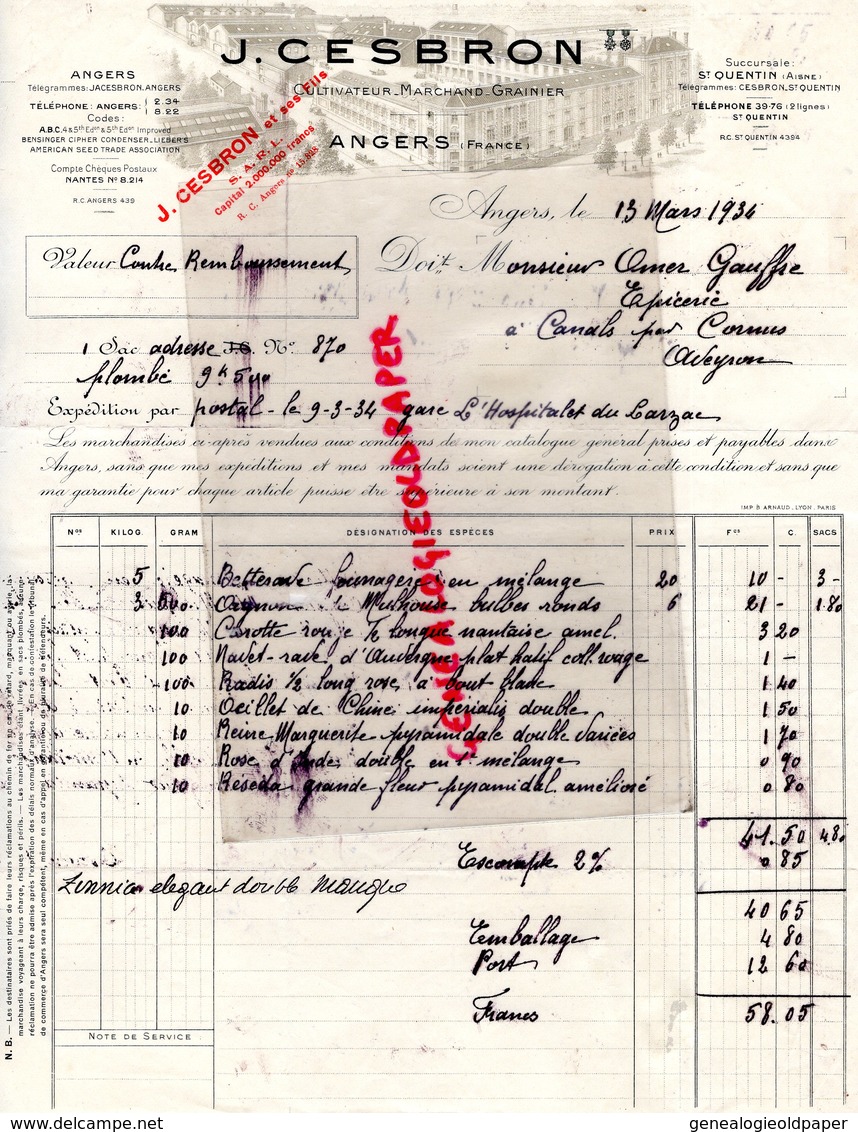 J. CESBRON
CULTIVATEUR-MARCHAND-GRAINIER
ANGERS (FRANCE)
ANGERS
Télégrammes: JACESBRON.ANGERS
TÉLÉPHONE: ANGERS: 2.34
8.22
Codes:
A.B.C. 4 & 5th Edon & 5th Edon Improved
BENSINGER CIPHER CONDENSER_LIEBER'S
AMERICAN SEED TRADE ASSOCIATION
Compte Chèques Postaux
NANTES No 8.214
R.C. ANGERS 439
J. CESBRON et ses Fils
S. A. R. L.
Capital 2.000.000 francs
R. C. Angers no 15.888
Succursale:
ST QUENTIN (AISNE)
Télégrammes: CESBRON_ST QUENTIN
TÉLÉPHONE 39-76 (2 lignes)
ST QUENTIN
R.C. ST QUENTIN 4394
Angers, le 13 Mars 1934
Valeur Contre Remboursement
Doit Monsieur Omer Gauffre
Epicerie
à Canals par Cornus
Aveyron
1 Sac adresse J.C. No 870
plombé 9k500
Expédition par postal - le 9-3-34 gare L'Hospitalet du Larzac
Les marchandises ci-après vendues aux conditions de mon catalogue général prises et payables dans
Angers, sans que mes expéditions et mes mandats soient une dérogation à cette condition et sans que
ma garantie pour chaque article puisse être supérieure à son montant.
IMP. B. ARNAUD_LYON_PARIS
Nos KILOG. GRAM DÉSIGNATION DES ESPÈCES PRIX Fcs C. SACS
5 Betterave fourragère en mélange 20 10 - 3 -
3 500 Oignon de Mulhouse bulbes ronds 6 21 - 1.80
100 Carotte rouge ½ longue nantaise amel. 3 20
100 Navet-rave d'Auvergne plat hatif coll. rouge 1 -
100 Radis ½ long rose à bout blanc 1 40
10 Oeillet de Chine imperialis double 1 50
10 Reine Marguerite pyramidale double variées 1 70
10 Rose d'Inde double en mélange 0 90
10 Réséda grande fleur pyramidal amélioré 0 80
41.50 4.80
Escompte 2% 0 85
Zinnia elegant double manque
40 65
Emballage 4 80
Port 12 60
Francs 58.05
NOTE DE SERVICE
N. B. — Les destinataires sont priés de faire leurs réclamations au chemin de fer en cas de retard, manquant ou avarie, la
marchandise voyageant à leurs charge, risques et périls. — Les marchandises étant livrées en sacs plombés, aucune
réclamation ne pourra être admise après l'expiration des délais normaux d'analyse. — En cas de contestation le tribunal
de commerce d'Angers sera seul compétent, même en cas d'appel en garantie ou de pluralité de défendeurs.
GENEALOGIEOLDPAPER
delcampe.net
genealogieoldpaper